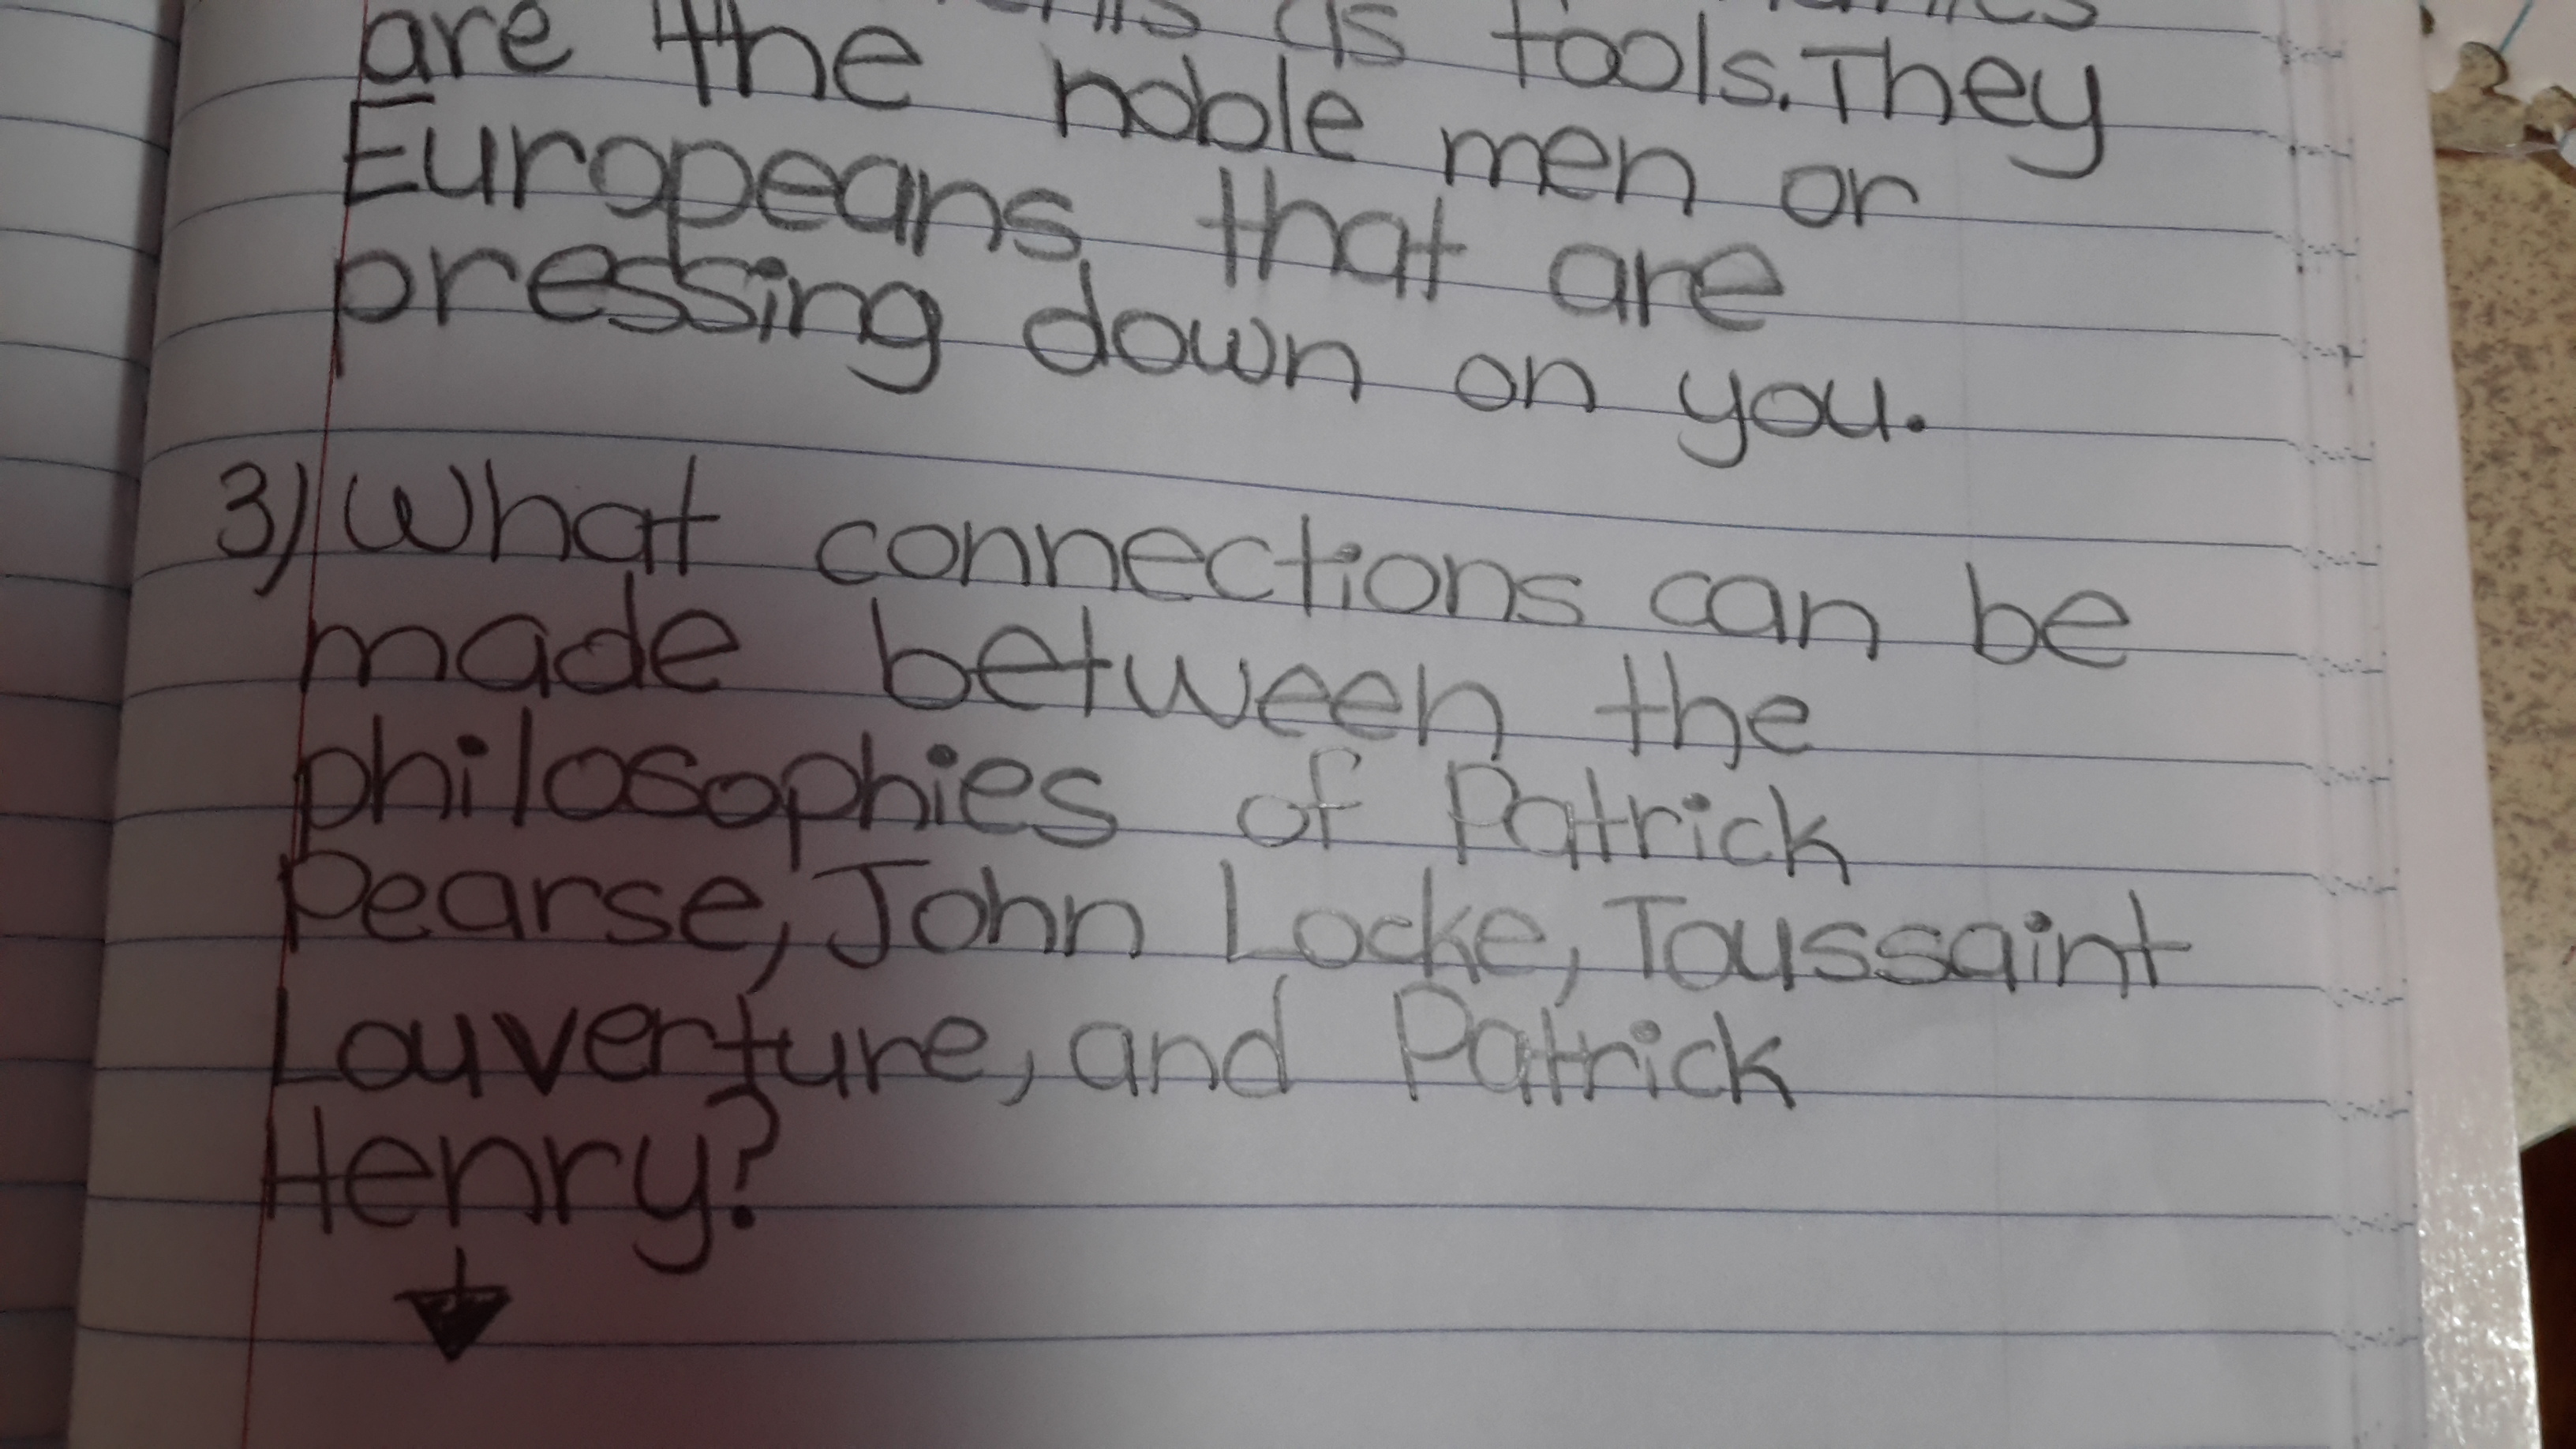 as tools. They
are the noble men or
Europeans that are
pressing down on you.
3) What connections can be
made between the
philosophies of Patrick
Pearse, John Locke, Toussaint
Louverture, and Patrick
Henry?